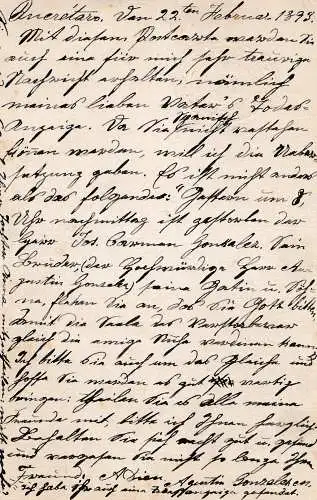 Querétaro. Den 22.ten Februar 1893.
Mit diesen Postcarte werden Sie
auch eine für mich sehr traurige
Nachricht erhalten, nämlich
meines lieben Vater's Todes-
Anzeige. Da Sie spanisch nicht verstehen
können werden, will ich die Ueber
setzung geben. Es ist nicht anders
als das folgendes: "Gestern um 8
Uhr nachmittag ist gestorben der
Herr Jos. German Gonzalez. Sein
Bruder, (der Hochwürdige Herr Au
gustin Gonzalez) seine Gatin u. Söh
ne, flehen Sie an, das Sie Gott bitten,
damit die Seele des Verstorbener
gleich die ewige Ruhe verdienen kann."
Ich bitte Sie auch um das Gleiche und
hoffe Sie werden es gut fertig
bringen: theilen Sie es alle meine
Freunde mit, bitte ich Ihnen herzlich.
Erhalten Sie sich recht gut u. gesund
und vergessen Sie nicht so lange Ihren
Freund, Adieu. Agustin Gonzalez
Ich habe Ihr auch eine gesandet.